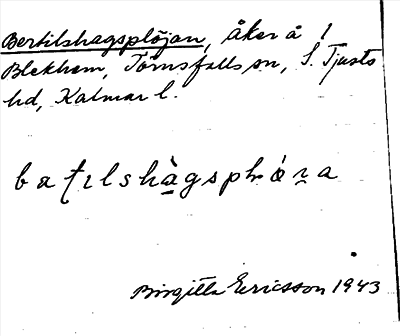 Bertilshagsplöjan, åker å 1
Blekhem, Törnsfalls sn, S. Tjusts
hd, Kalmar l.
Birgitta Ericsson 1943